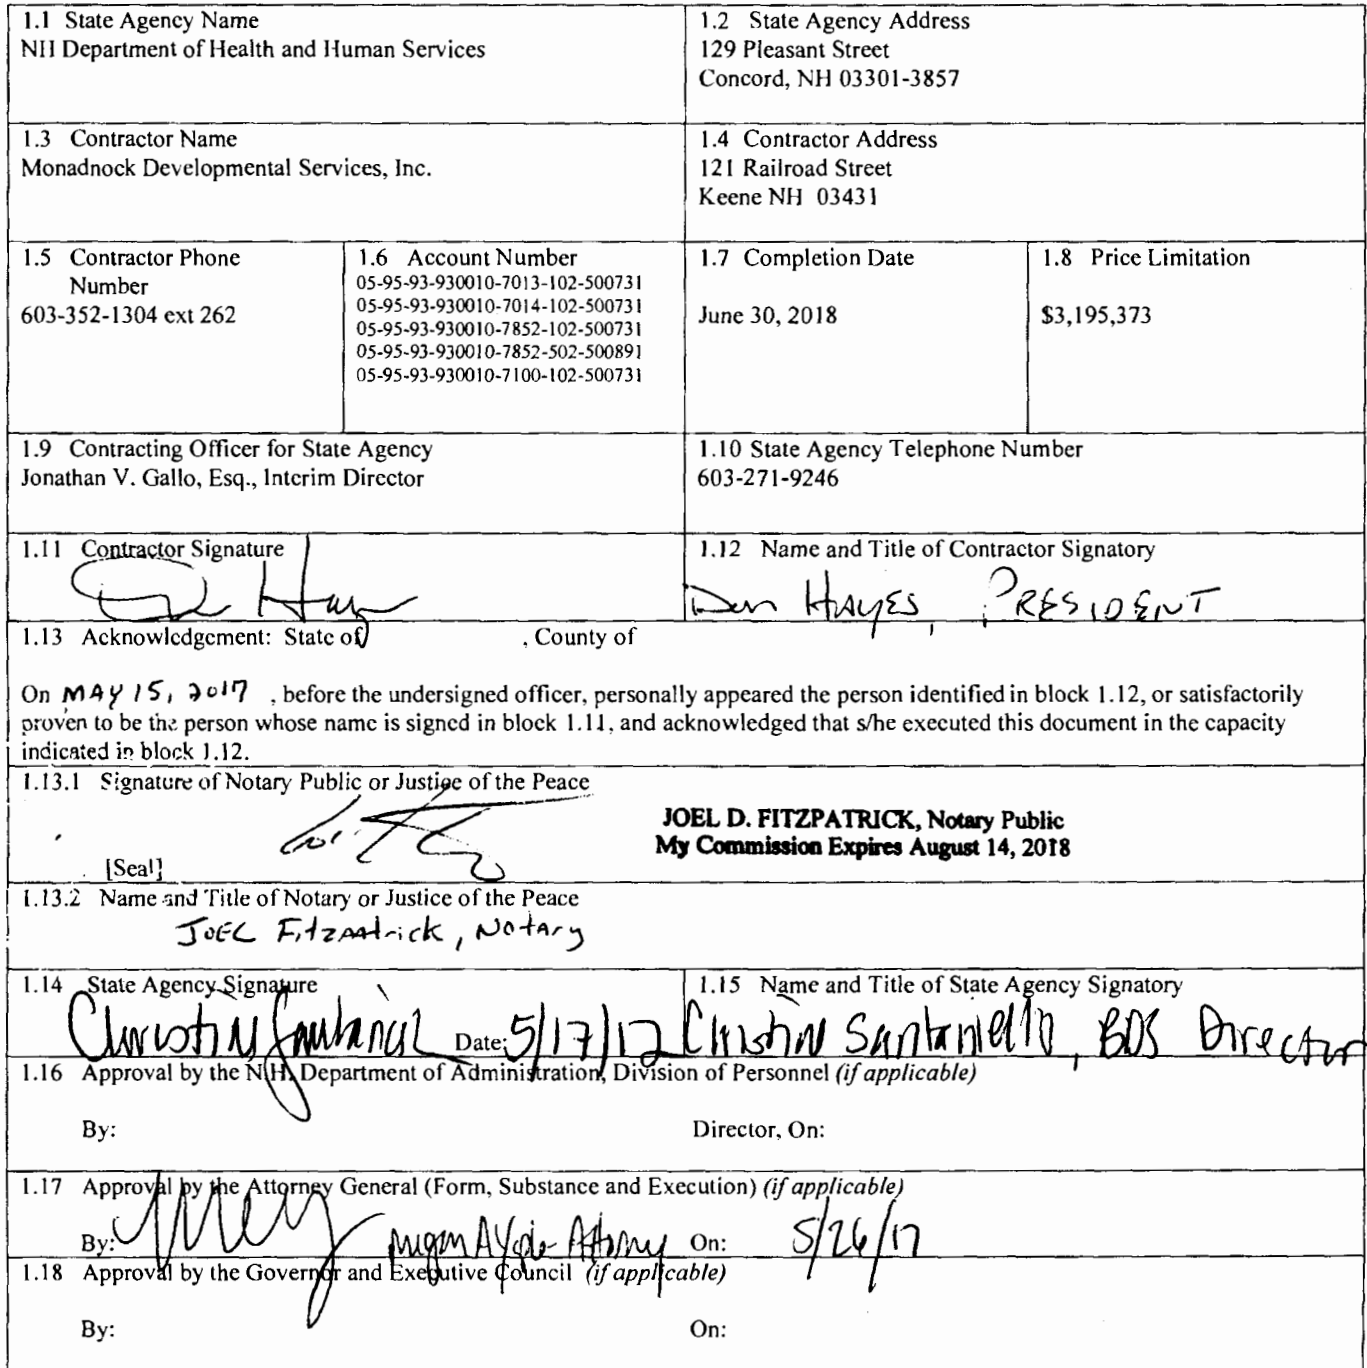 1.1 State Agency Name
NH Department of Health and Human Services
1.2 State Agency Address
129 Pleasant Street
Concord, NH 03301-3857
1.3 Contractor Name
Monadnock Developmental Services, Inc.
1.4 Contractor Address
121 Railroad Street
Keene NH 03431
1.5 Contractor Phone
Number
603-352-1304 ext 262
1.6 Account Number
05-95-93-930010-7013-102-500731
05-95-93-930010-7014-102-500731
05-95-93-930010-7852-102-500731
05-95-93-930010-7852-502-500891
05-95-93-930010-7100-102-500731
1.7 Completion Date
June 30, 2018
1.8 Price Limitation
$3,195,373
1.9 Contracting Officer for State Agency
Jonathan V. Gallo, Esq., Interim Director
1.10 State Agency Telephone Number
603-271-9246
1.11 Contractor Signature
1.12 Name and Title of Contractor Signatory
HAYES, PRESIDENT
1.13 Acknowledgement: State of , County of
On MAY 15, 2017 , before the undersigned officer, personally appeared the person identified in block 1.12, or satisfactorily
proven to be the person whose name is signed in block 1.11, and acknowledged that s/he executed this document in the capacity
indicated in block 1.12.
1.13.1 Signature of Notary Public or Justice of the Peace
JOEL D. FITZPATRICK, Notary Public
My Commission Expires August 14, 2018
[Seal]
1.13.2 Name and Title of Notary or Justice of the Peace
JOEL Fitzpatrick, Notary
1.14 State Agency Signature
Date: 5/17/17
1.15 Name and Title of State Agency Signatory
Christine Santaniello, BDS Director
1.16 Approval by the N.H. Department of Administration, Division of Personnel (if applicable)
By: Director, On:
1.17 Approval by the Attorney General (Form, Substance and Execution) (if applicable)
By: Attorney On: 5/26/17
1.18 Approval by the Governor and Executive Council (if applicable)
By: On: